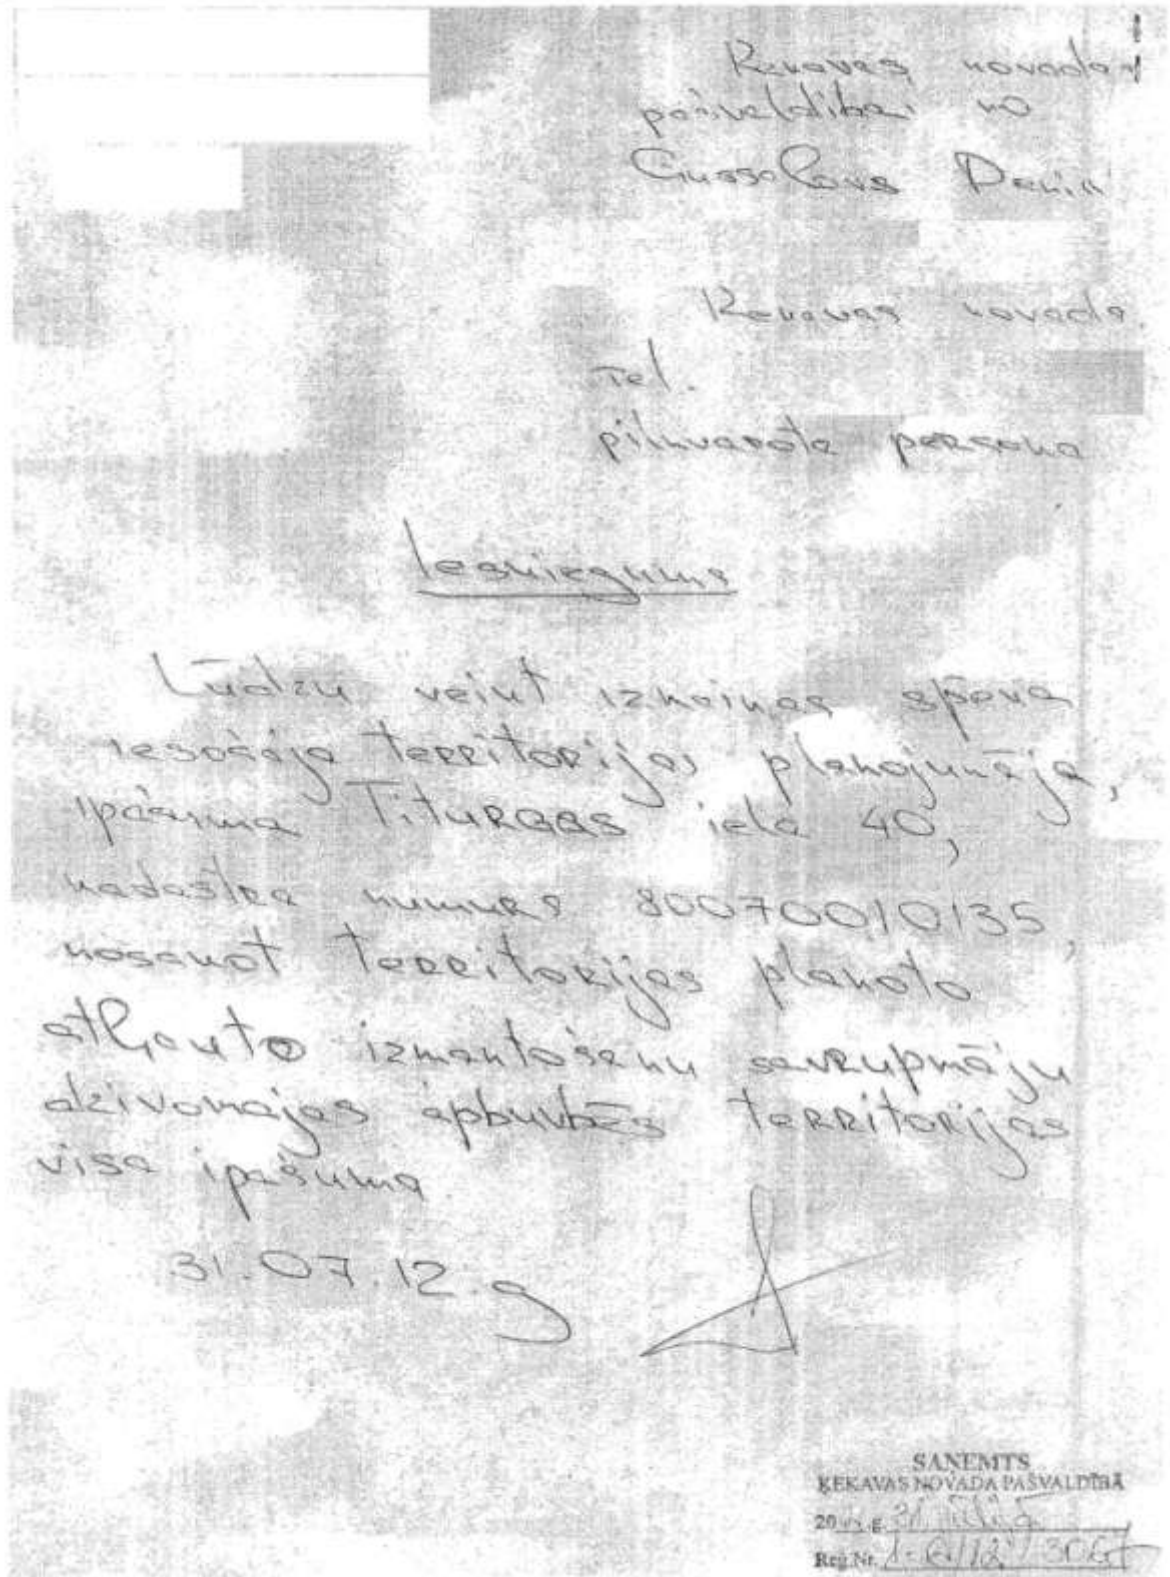 Ķekavas novada
pašvaldībai no
Gussalovs Denis
Ķekavas novada
Tel.
pilnvarota persona
Iesniegums
Lūdzu veint izmaiņas spēvā
iesošajā territorijas planojumāja,
ipāšima Titurgas iela 40,
kadastra numurs 80070010135,
nosakot territorijas planoto
atļauto izmantošanu savrupmāju
dzīvomajas apbuvbēs territorijas
visa ipašuma
31.07.12.g
SAŅEMTS
ĶEKAVAS NOVADA PAŠVALDĪBĀ
20 g. 31. jūlijā
Reģ.Nr.